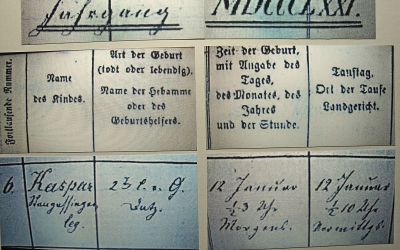 Jahrgang
MDCCCLXXI.
Fortlaufende Nummer.
Name
des Kindes.
Art der Geburt
(todt oder lebendig).
Name der Hebamme
oder des
Geburtshelfers.
Zeit der Geburt,
mit Angabe des
Tages,
des Monates, des
Jahres
und der Stunde.
Tauftag.
Ort der Taufe
Landgericht.
6. Kaspar
leg.
12 Januar
½ 3 Uhr
Morgens.
12 Januar
½ 10 Uhr
Vormittgs.